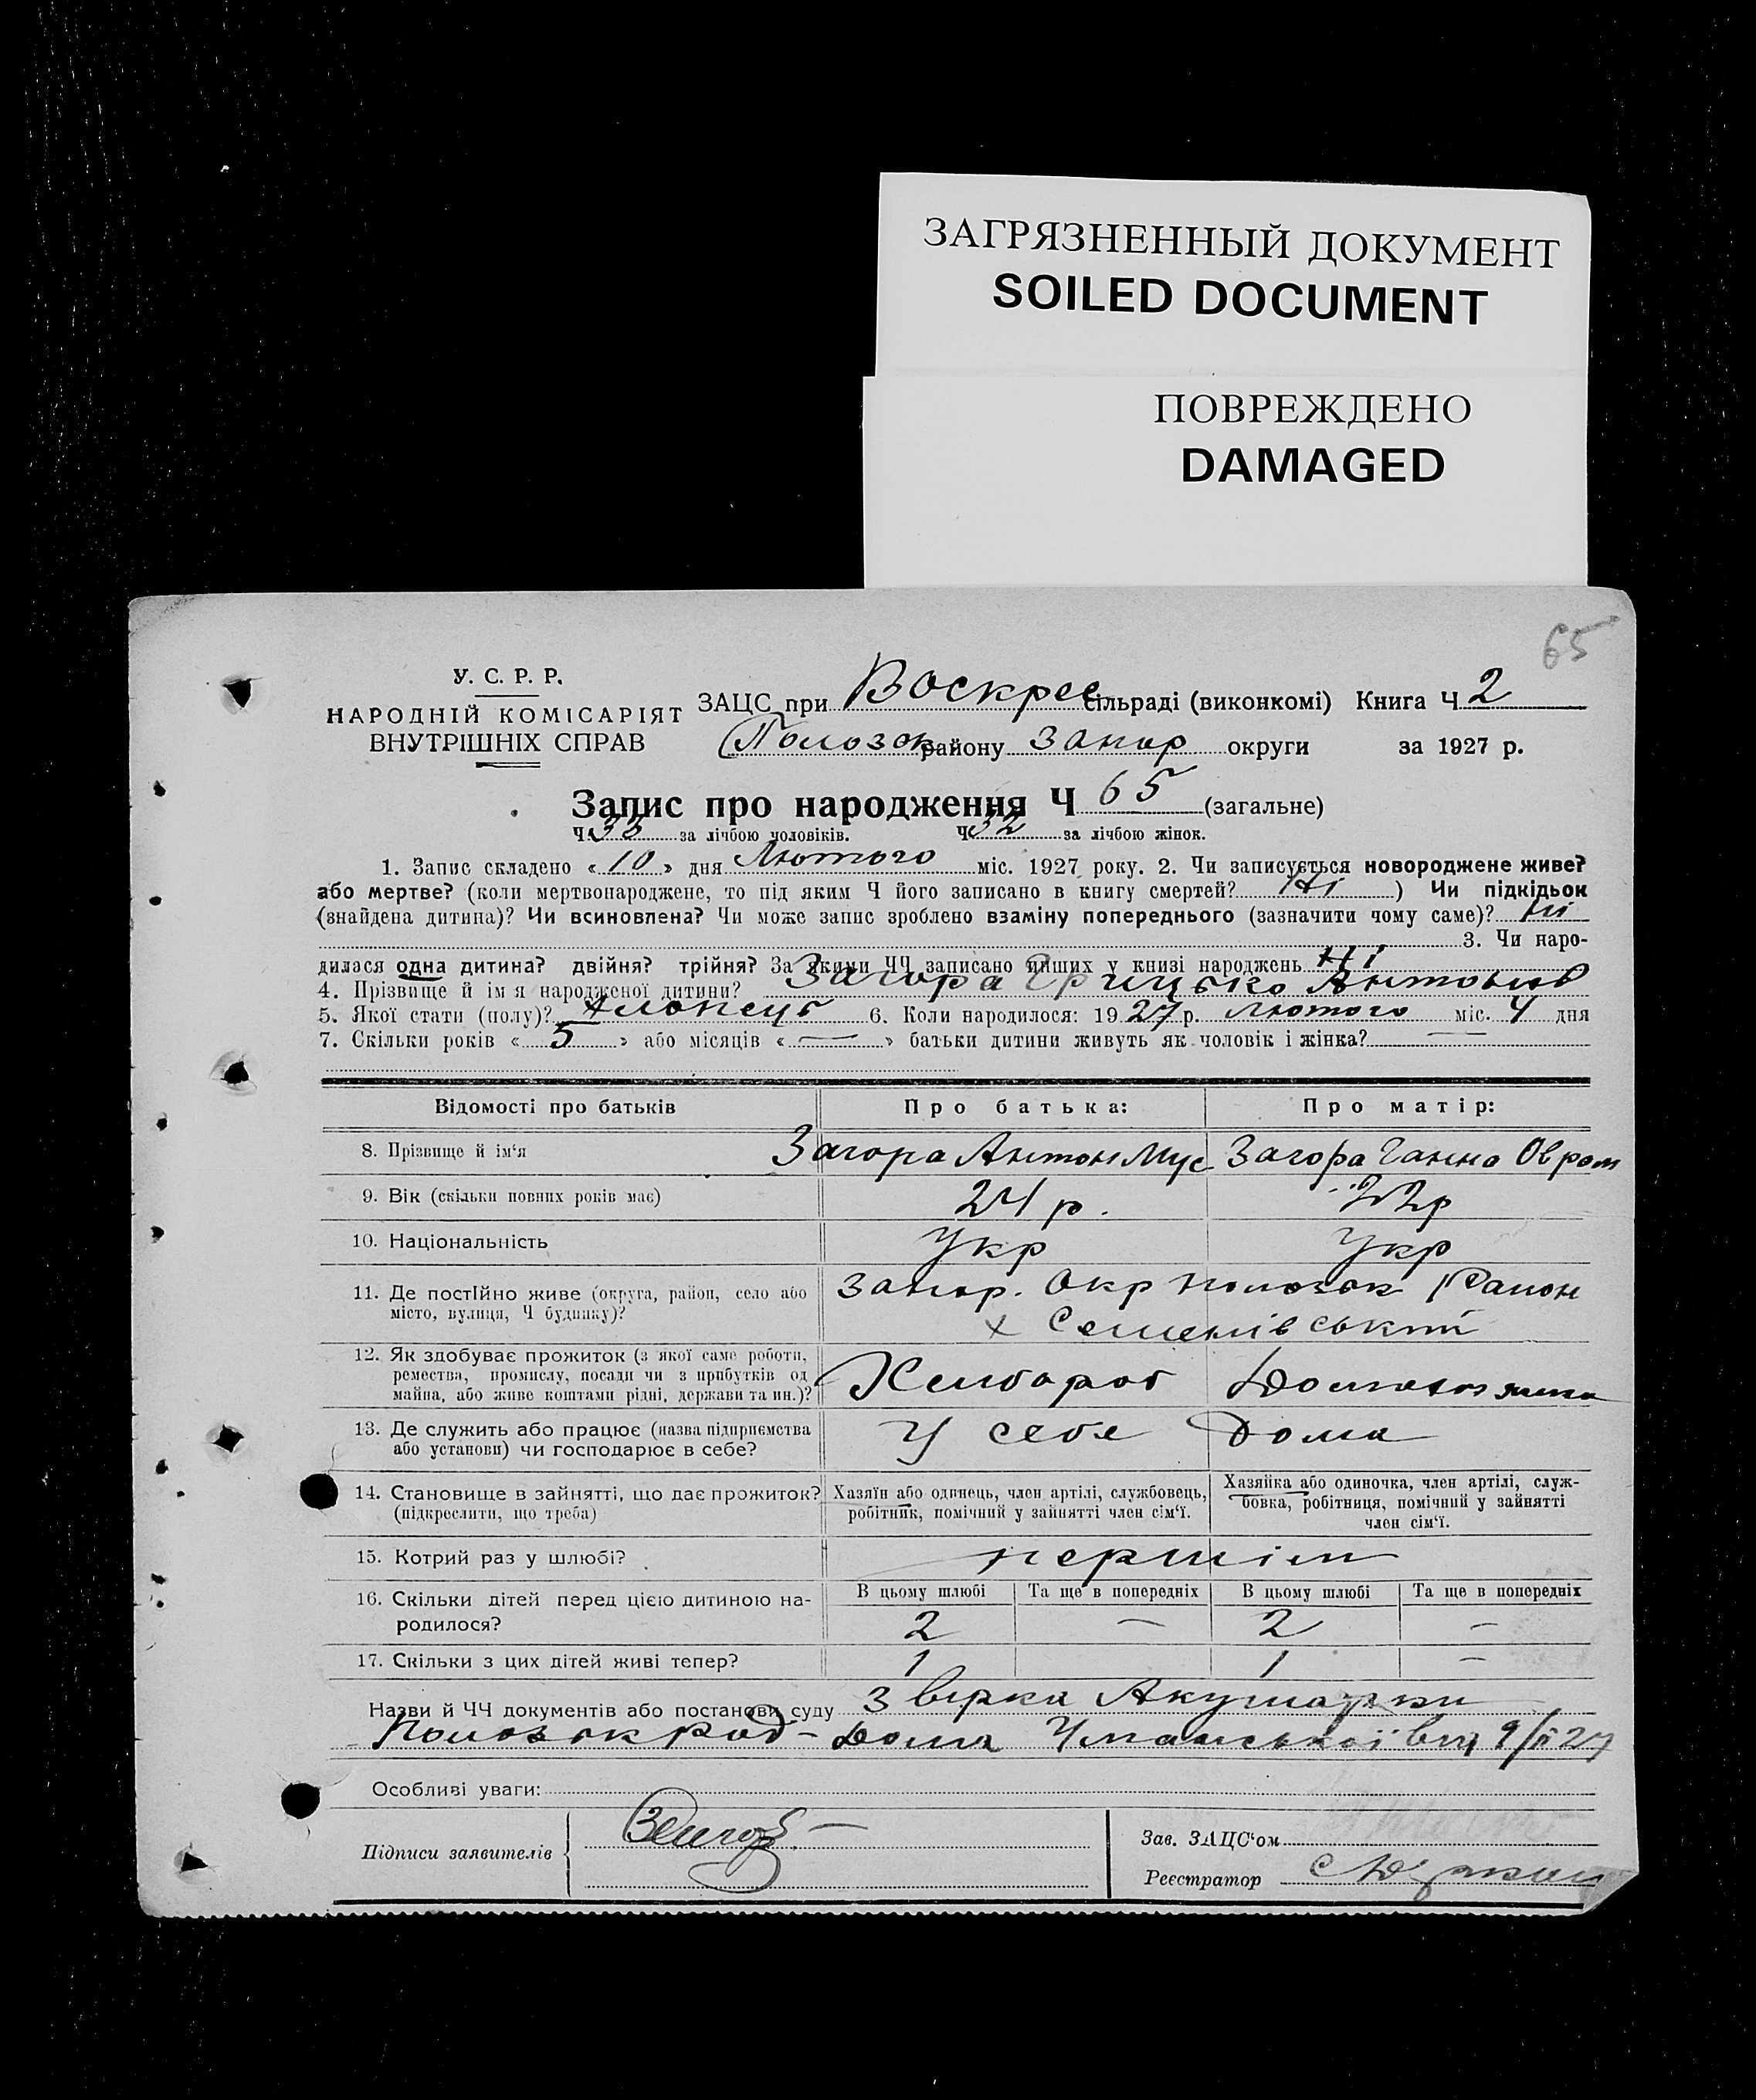 ЗАГРЯЗНЕННЫЙ ДОКУМЕНТ
SOILED DOCUMENT
ПОВРЕЖДЕНО
DAMAGED
65
У. С. Р. Р.
НАРОДНІЙ КОМІСАРІЯТ
ВНУТРІШНІХ СПРАВ
ЗАЦС при Воскрес сільраді (виконкомі) Книга Ч 2
Полозок району Запор округи за 1927 р.
Запис про народження Ч 65 (загальне)
Ч 33 за лічбою чоловіків. Ч 32 за лічбою жінок.
1. Запис складено « 10 » дня Лютого міс. 1927 року. 2. Чи записується новороджене живе?
або мертве? (коли мертвонароджене, то під яким Ч його записано в книгу смертей? Ні ) Чи підкідьок
(знайдена дитина)? Чи всиновлена? Чи може запис зроблено взаміну попереднього (зазначити чому саме)? Ні
3. Чи наро-
дилася одна дитина? двійня? трійня? За якими ЧЧ записано инших у книзі народжень Ні
4. Прізвище й ім я народженої дитини? Загора Грицько Антонов
5. Якої стати (полу)? 6. Коли народилося: 1927 р. Лютого міс. 4 дня
7. Скільки років « 5 » або місяців « — » батьки дитини живуть як чоловік і жінка? —
Відомості про батьків Про батька: Про матір:
8. Прізвище й ім‘я Загора Антон Мус Загора Ганна Оврам
9. Вік (скільки повних років має) 24 р. 22р
10. Національність Укр Укр
11. Де постійно живе (округа, район, село або Запор. Окр Полозок Район
місто, вулиця, Ч будинку)? х Семенівський
12. Як здобуває прожиток (з якої саме роботи,
ремества, промислу, посади чи з прибутків од Хлібороб
майна, або живе коштами рідні, держави та ин.)?
13. Де служить або працює (назва підприємства У себе Дома
або установи) чи господарює в себе?
14. Становище в зайнятті, що дає прожиток? Хазяїн або одинець, член артілі, службовець, Хазяйка або одиночка, член артілі, служ-
(підкреслити, що треба) робітник, помічний у зайнятті член сім‘ї. бовка, робітниця, помічний у зайнятті
член сім‘ї.
15. Котрий раз у шлюбі? першім
16. Скільки дітей перед цією дитиною на- В цьому шлюбі Та ще в попередніх В цьому шлюбі Та ще в попередніх
родилося? 2 — 2 —
17. Скільки з цих дітей живі тепер? 1 1 —
Назви й ЧЧ документів або постанови суду Звірка Акушорки
Полозок Род- Дома Уманської від 9/ii 27
Особливі уваги:
Підписи заявителів
Зав. ЗАЦС‘ом
Реєстратор